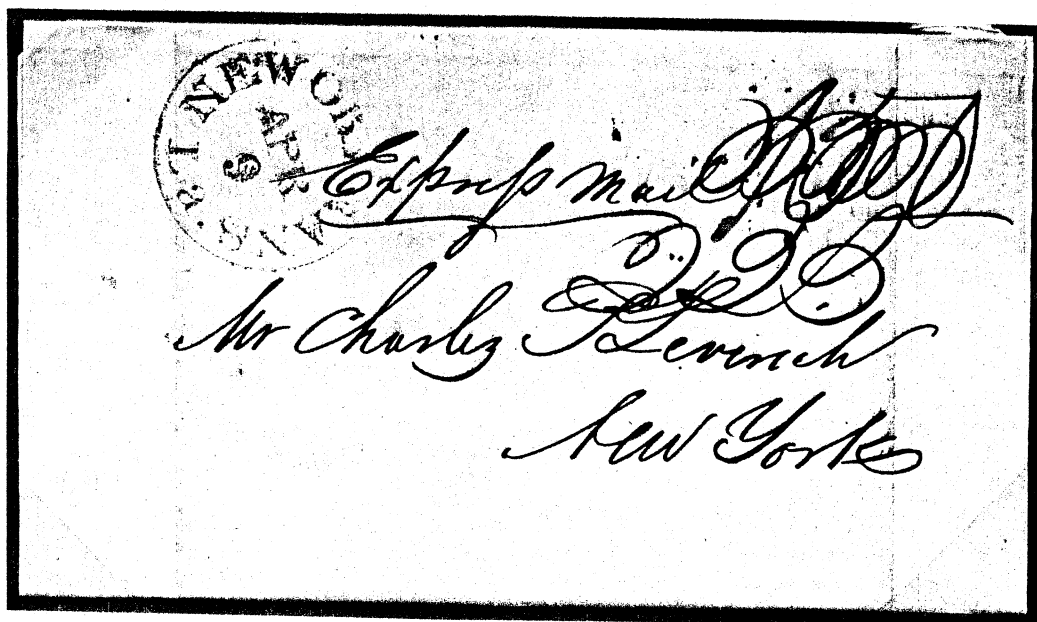 NEW ORLEANS LA.
APR
9
Express Mail
Mr Charles P Leverich
New York